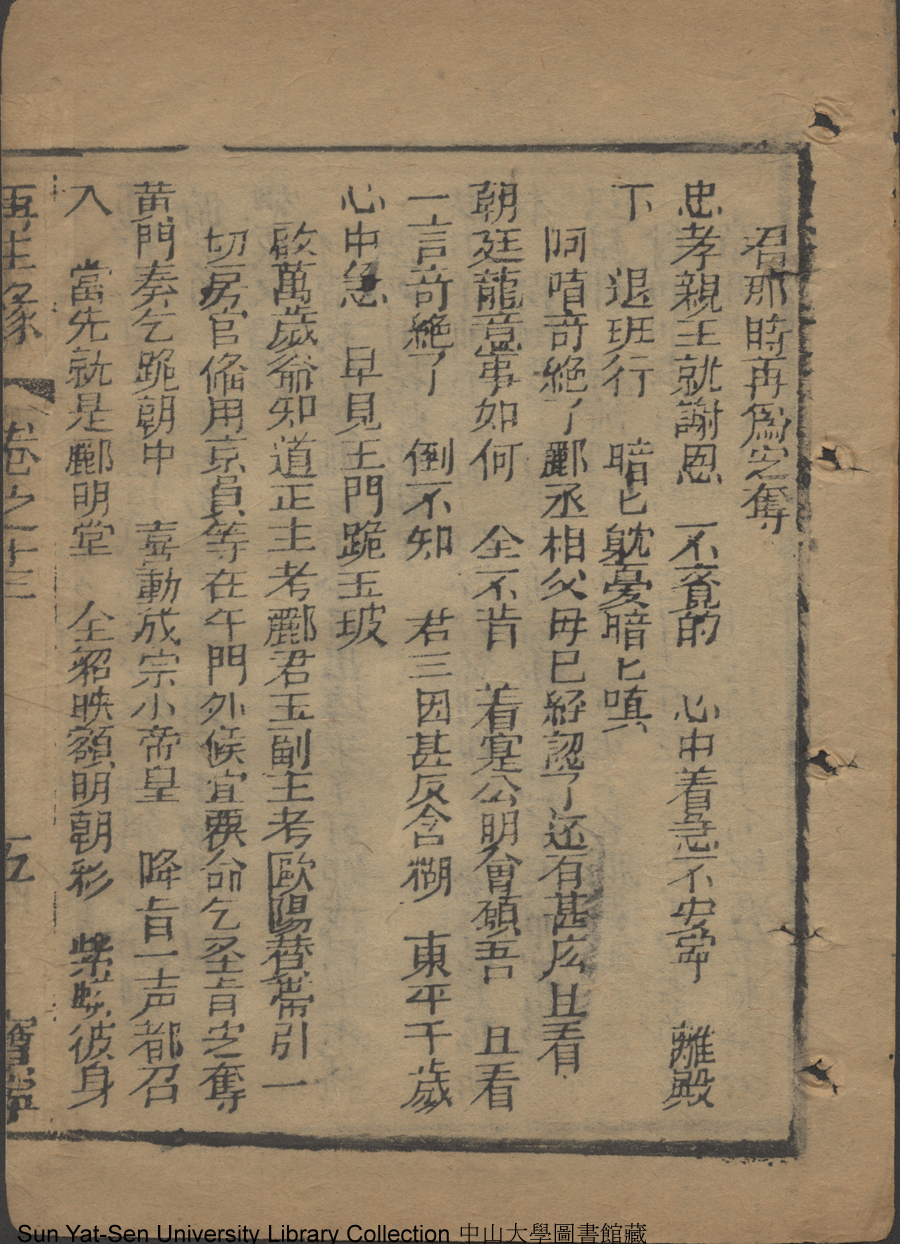 君那時再為定奪
忠孝親王就謝恩　不竟的　心中着急不安寧　離殿
下　退班行　暗匕躭憂暗匕嗔
呵唷奇絶了酈丞相父母已經認了还有甚庅且看
朝廷龍意事如何　全不肯　着寔公明會碩吾　且看
一言奇絶了　倒不知　君三因甚反含糊　東平千歲
心中急　早見王門跪玉坡
啟萬歲爺知道正主考酈君玉副主考歐陽替帶引一
切房官俻用京員等在午門外候宜要命乞圣旨定奪
黄門奏乞跪朝中　喜動成宗小帝皇　降旨一声都召
入　當先就是酈明堂　全貂映額明朝彩　紫蟒彼身
再生緣　卷之十三　五　寶寧
Sun Yat-Sen University Library Collection 中山大學圖書館藏